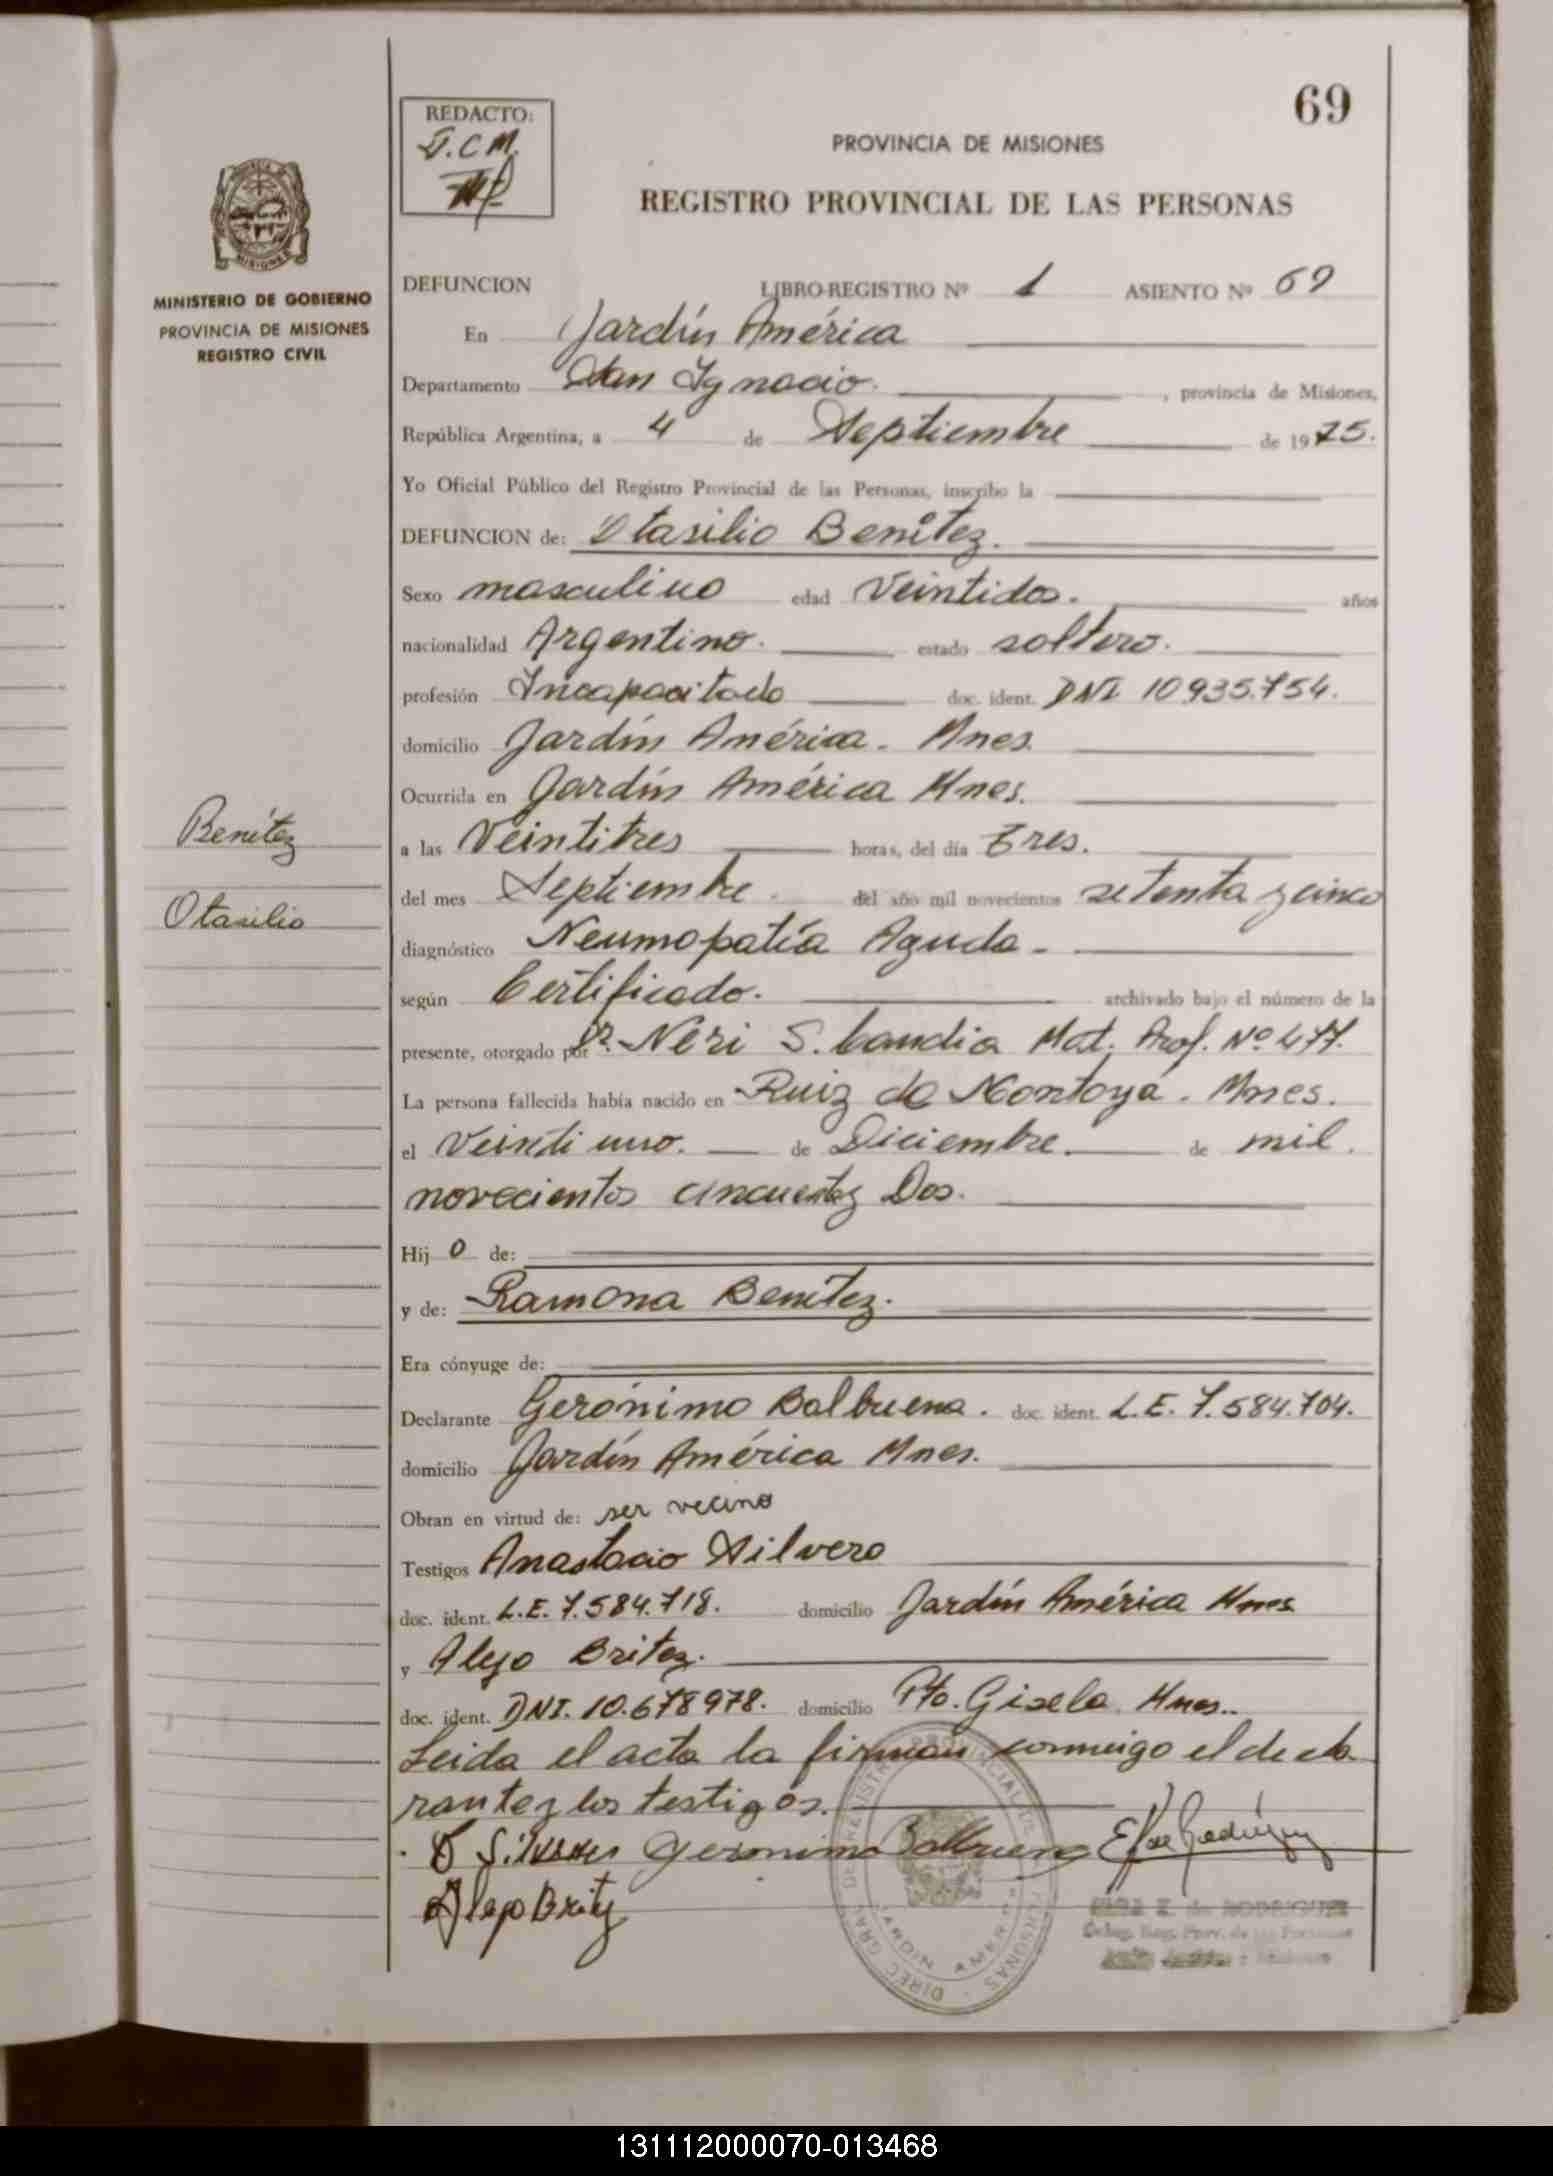 69
REDACTO:
J.C.M.
PROVINCIA DE MISIONES
REGISTRO PROVINCIAL DE LAS PERSONAS
MINISTERIO DE GOBIERNO
PROVINCIA DE MISIONES
REGISTRO CIVIL
DEFUNCION LIBRO-REGISTRO Nº 1 ASIENTO Nº 69
En Jardín América
Departamento San Ignacio. , provincia de Misiones,
República Argentina, a 4 de Septiembre de 1975.
Yo Oficial Público del Registro Provincial de las Personas, inscribo la
DEFUNCION de: Otasilio Benítez.
Sexo masculino edad Veintidos. años
nacionalidad Argentino. estado soltero.
profesión Incapacitado doc. ident. DNI 10935.754.
domicilio Jardín América. Mnes.
Ocurrida en Jardín América Mnes.
Benítez
Otasilio
a las Veintitres horas, del día Tres.
del mes Septiembre. del año mil novecientos setenta y cinco
diagnóstico Neumopatía Aguda -
según Certificado. archivado bajo el número de la
presente, otorgado por Dr. Neri S. Candia Mat. Prof. Nº 477.
La persona fallecida había nacido en Ruiz de Montoya. Mnes.
el Veintiuno. de Diciembre. de mil.
novecientos cincuenta y Dos.
Hij o de:
y de: Ramona Benítez.
Era cónyuge de:
Declarante Gerónimo Balbuena. doc. ident. L.E. 7.584.704.
domicilio Jardín América Mnes.
Obran en virtud de: ser vecino
Testigos Anastacio Silvero
doc. ident. L.E. 7.584.718. domicilio Jardín América Mnes
y Alejo Britez.
doc. ident. DNI. 10.678978. domicilio Pto. Gisela Mnes..
Leida el acta la firman conmigo el decla-
rante y los testigos.
Geronimo Balbuena
Alejo Britez
DE RODRIGUEZ
Deleg. Reg. Prov. de las Personas
JARDIN AMERICA
131112000070-013468